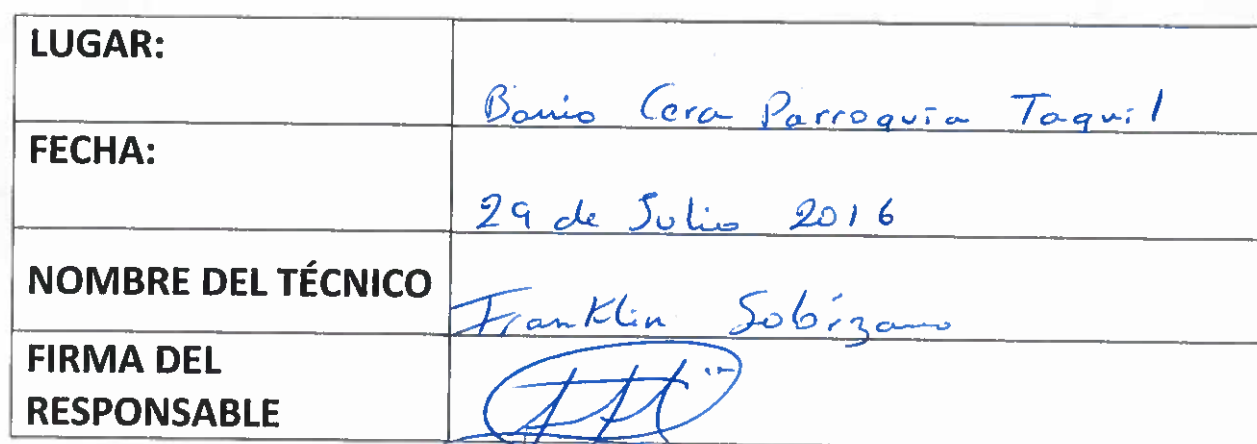 LUGAR:
Barrio Cera Parroquia Taquil
FECHA:
29 de Julio 2016
NOMBRE DEL TÉCNICO
Franklin
FIRMA DEL
RESPONSABLE